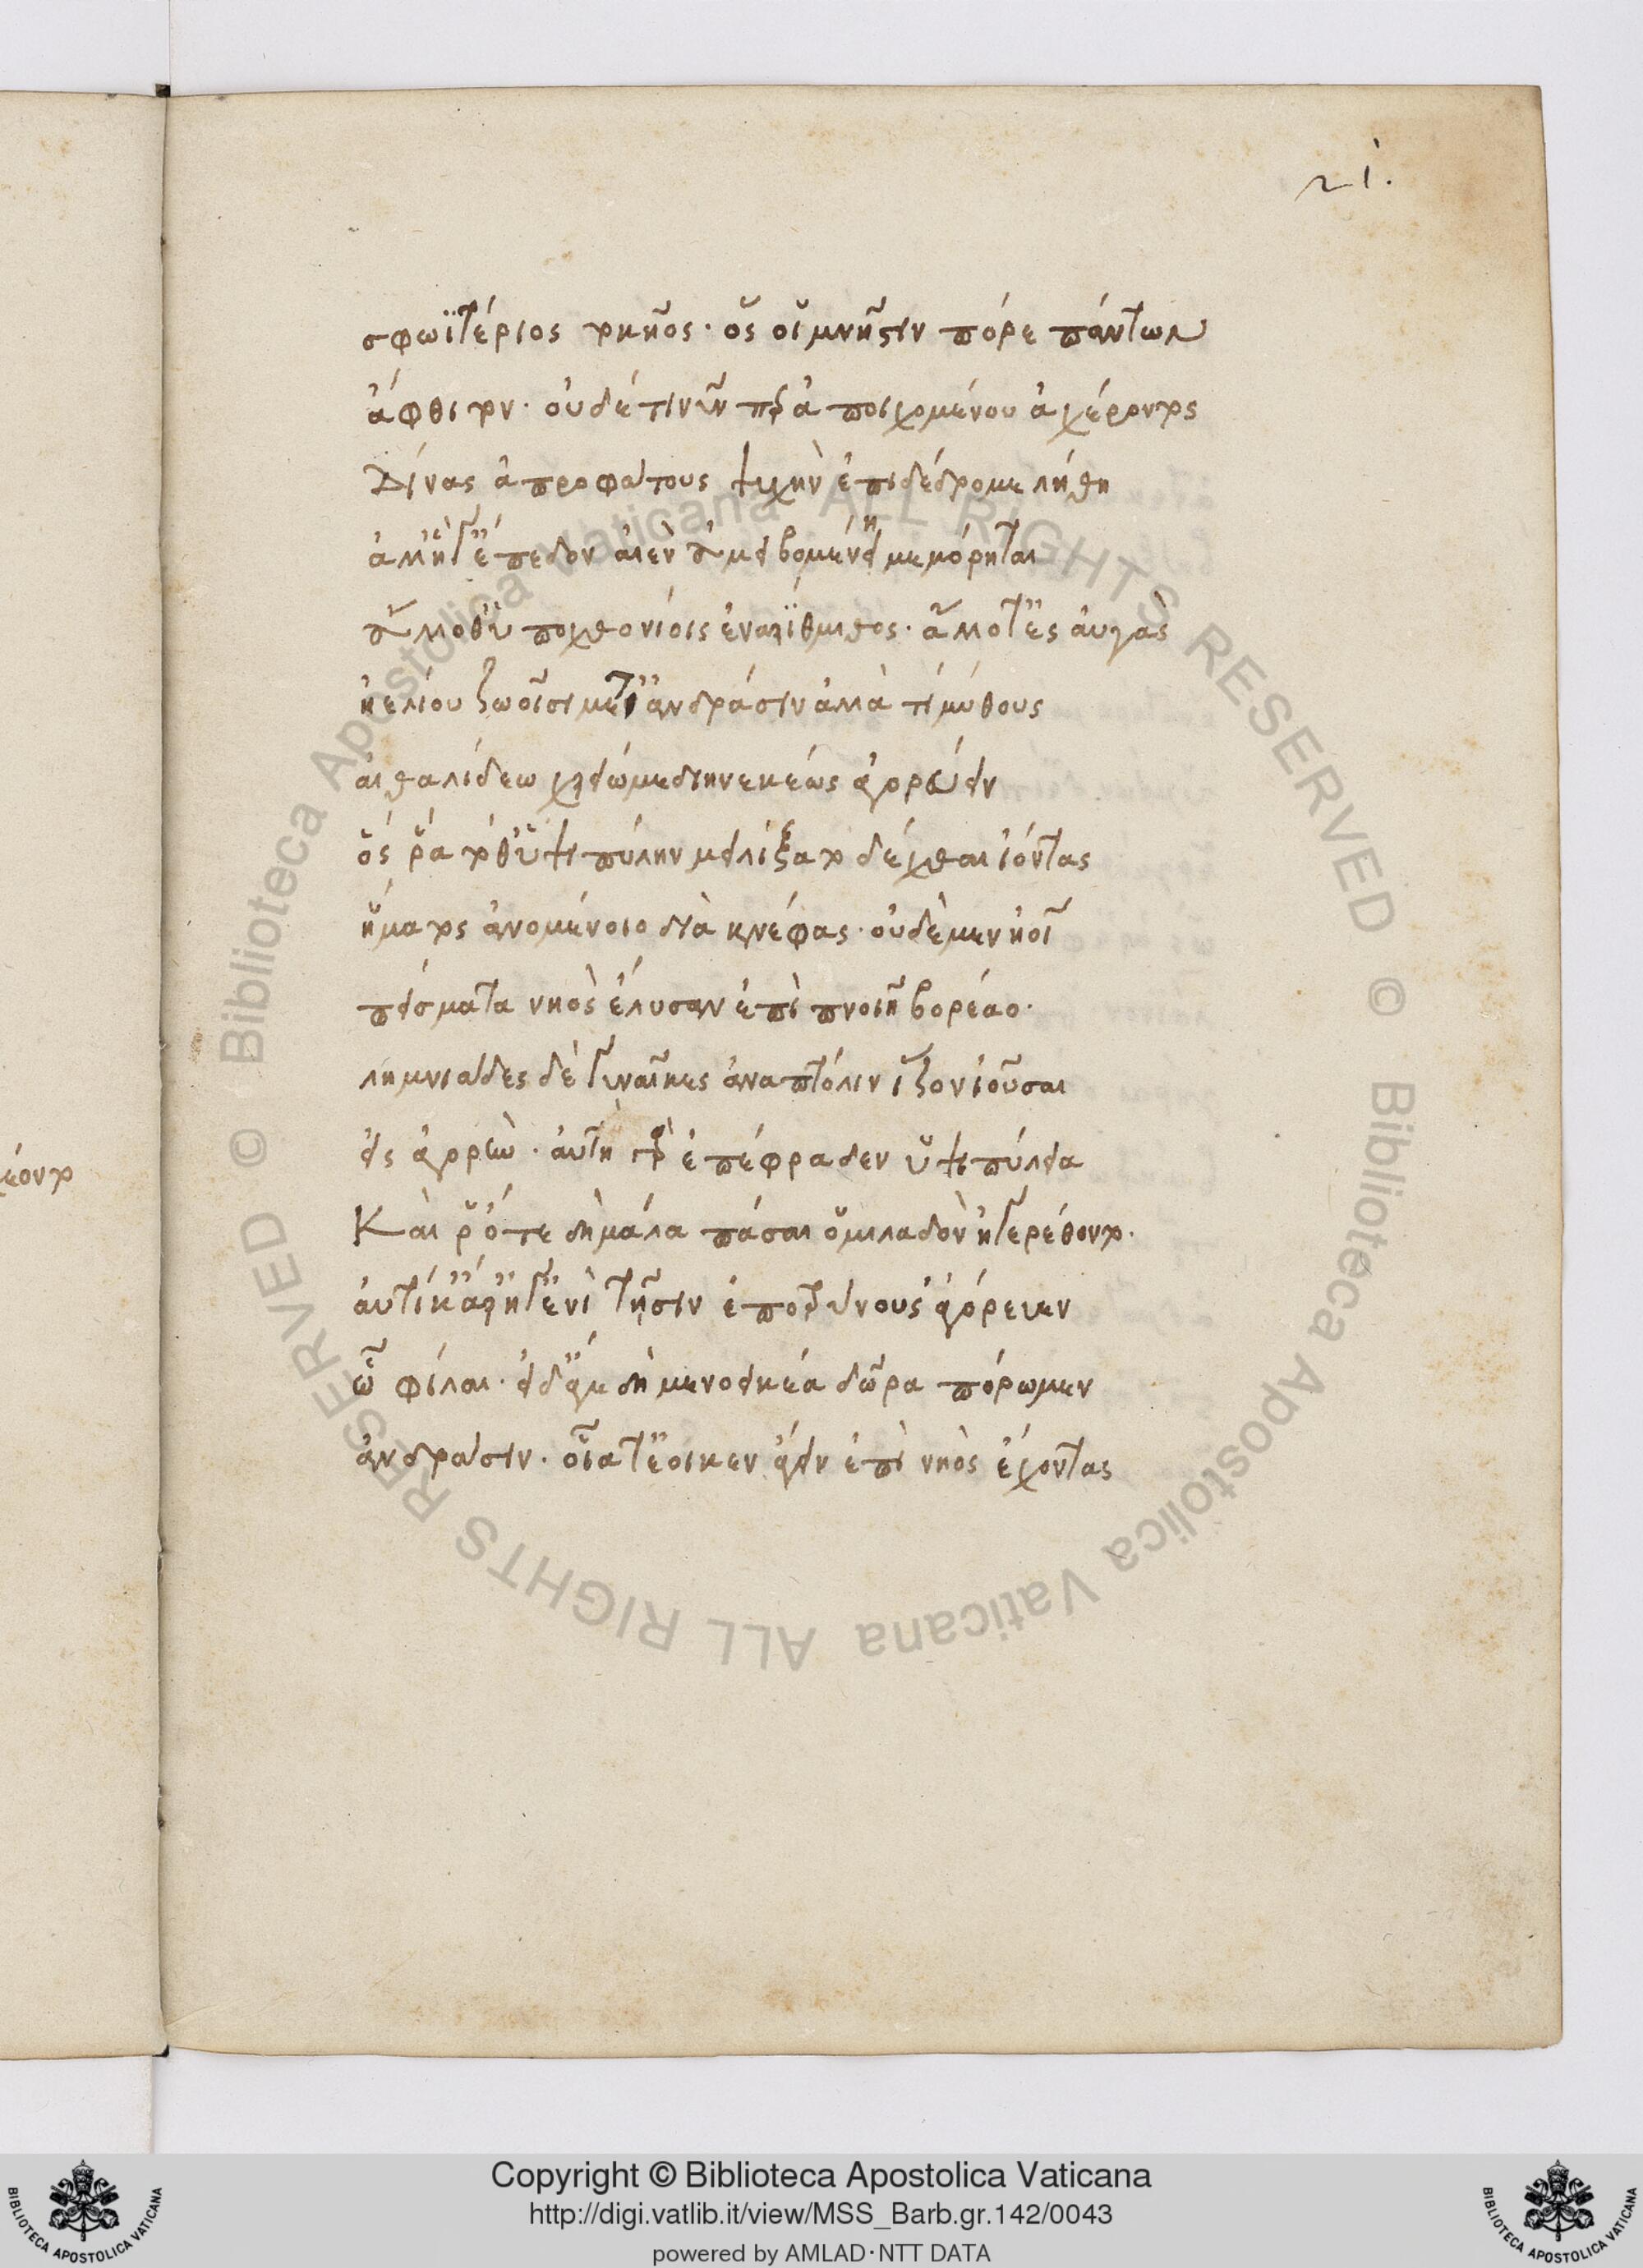 21.
σφωϊτέριος τοκῆος· ὅς οἱ μνῆστιν πόρε πάντων
ἄφθιτον· οὐδέτι νῦν περ ἀποιχομένου ἀχέροντος
Δίνας ἀπροφάτους ψυχὴν ἐπιδέδρομε λήθη
ἀλλ' ἥγ' ἔμπεδον αἰὲν ἀμειβομένη μεμόρηται
ἄλλοθ' ὑποχθονίοις ἐναρίθμιος· ἄλλοτ' ἐς αὐγὰς
ἠελίου ζωοῖσι μετ' ἀνδράσιν ἀλλὰ τί μύθους
αἰθαλίδεω χρειώ με διηνεκέως ἀγορεύειν
ὅς ῥα τόθ' ὑψιπύλην μειλίξατο δέχθαι ἰόντας
ἤματος ἀνομένοιο διὰ κνέφας· οὐδὲ μὲν ἠοῖ
πείσματα νηὸς ἔλυσαν ἐπὶ πνοιῇ βορέαο·
λημνιάδες δὲ γυναῖκες ἀνα πτόλιν ἷζον ἰοῦσαι
εἰς ἀγορὴν· αὐτὴ γὰρ ἐπέφραδεν ὑψιπύλεια
Καὶ ῥ' ὅτε δὴ μάλα πᾶσαι ὁμιλαδὸν ἠγερέθοντο·
αὐτίκ' ἄρ' ἥγ' ἐνὶ τῇσιν ἐποτρύνουσ' ἀγόρευεν
ὦ φίλαι· εἰ δ' ἄγε δὴ μενοεικέα δῶρα πόρωμεν
ἀνδράσιν· οἷά τ' ἔοικεν ἄγειν ἐπὶ νηὸς ἔχοντας
έοντο
© Biblioteca Apostolica Vaticana ALL RIGHTS RESERVED
© Biblioteca Apostolica Vaticana ALL RIGHTS RESERVED
BIBLIOTECA APOSTOLICA VATICANA
Copyright © Biblioteca Apostolica Vaticana
http://digi.vatlib.it/view/MSS_Barb.gr.142/0043
powered by AMLAD·NTT DATA
BIBLIOTECA APOSTOLICA VATICANA